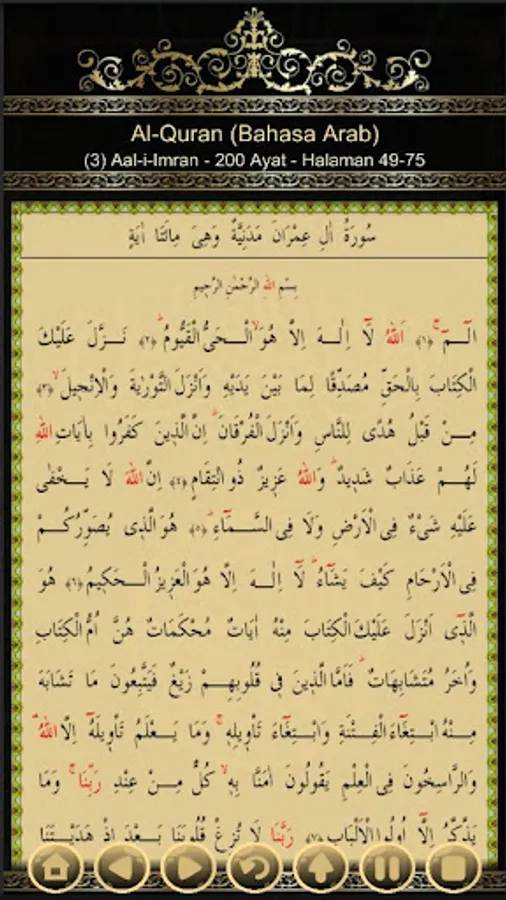 Al-Quran (Bahasa Arab)
(3) Aal-i-Imran - 200 Ayat - Halaman 49-75
سُورَةُ اٰلِ عِمْرَانَ مَدَنِيَّةٌ وَهِىَ مِائَتَا اٰيَةٍ
بِسْمِ اللهِ الرَّحْمٰنِ الرَّحِيمِ
الٓـمٓ ۚ ﴿١﴾ اَللهُ لَٓا اِلٰـهَ اِلَّا هُوَۙ الْـحَىُّ الْقَيُّومُ ۜ ﴿٢﴾ نَـزَّلَ عَلَيْكَ
الْكِتَابَ بِالْحَقِّ مُصَدِّقًا لِمَا بَيْنَ يَدَيْهِ وَاَنْزَلَ التَّوْرٰيةَ وَالْاِنْجِيلَۙ ﴿٣﴾
مِـنْ قَبْلُ هُدًى لِلنَّاسِ وَاَنْزَلَ الْفُرْقَانَۜ اِنَّ الَّذِينَ كَفَرُوا بِاٰيَاتِ اللهِ
لَهُـمْ عَذَابٌ شَدِيدٌۜ وَاللهُ عَزِيزٌ ذُو انْتِقَامٍ ﴿٤﴾ اِنَّ اللهَ لَا يَـخْفٰى
عَلَيْهِ شَىْءٌ فِى الْاَرْضِ وَلَا فِى السَّمَٓاءِۜ ﴿٥﴾ هُوَ الَّذِى يُصَوِّرُكُـمْ
فِى الْاَرْحَامِ كَيْفَ يَشَٓاءُۜ لَٓا اِلٰـهَ اِلَّا هُوَ الْعَزِيزُ الْـحَكِيمُ ﴿٦﴾ هُوَ
الَّذِٓى اَنْزَلَ عَلَيْكَ الْكِتَابَ مِنْهُ اٰيَاتٌ مُحْكَمَاتٌ هُنَّ اُمُّ الْكِتَابِ
وَاُخَرُ مُتَشَابِهَاتٌۜ فَاَمَّا الَّذِينَ فِى قُلُوبِهِـمْ زَيْغٌ فَيَتَّبِعُونَ مَا تَشَابَهَ
مِـنْهُ ابْتِغَٓاءَ الْفِـتْنَةِ وَابْتِغَٓاءَ تَأْوِيلِهِۚ وَمَا يَـعْلَمُ تَأْوِيلَهُٓ اِلَّا اللهُۢ
وَالرَّاسِخُونَ فِى الْعِلْمِ يَقُولُونَ اٰمَنَّا بِهِۙ كُلٌّ مِـنْ عِنْدِ رَبِّنَاۚ وَمَا
يَذَّكَّرُ اِلَّٓا اُولُوا الْاَلْبَابِ ﴿٧﴾ رَبَّنَا لَا تُزِغْ قُلُوبَنَا بَـعْدَ اِذْ هَدَيْتَنَا